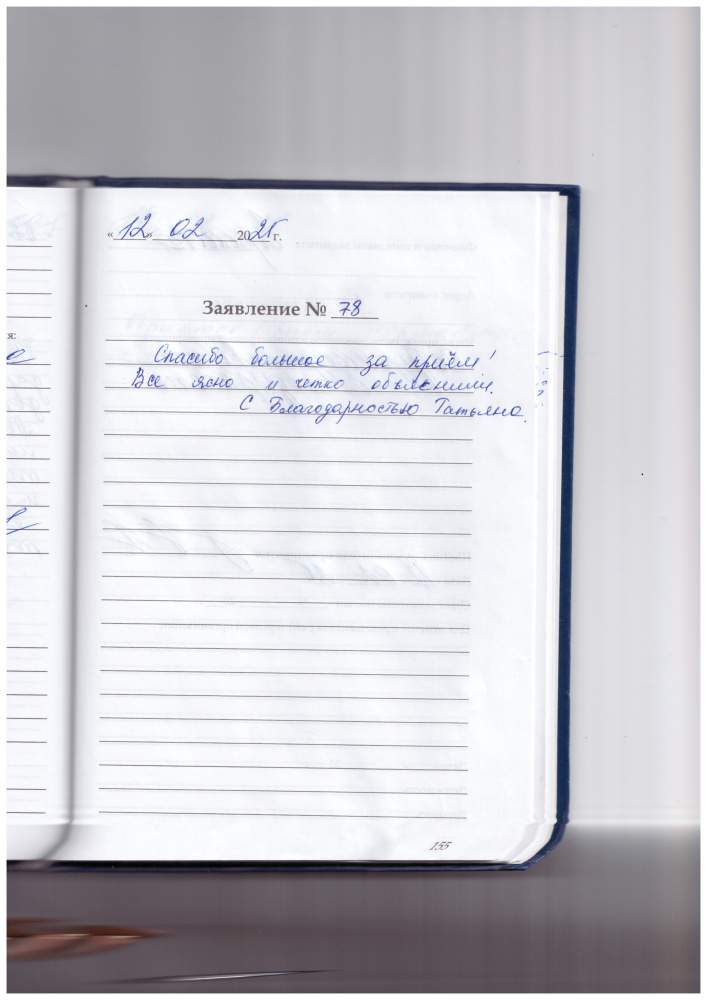 «12» 02 2025 г.
Заявление № 78
я:
Спасибо большое за приём!
Все ясно и четко объяснили.
С Благодарностью Татьяна.
155